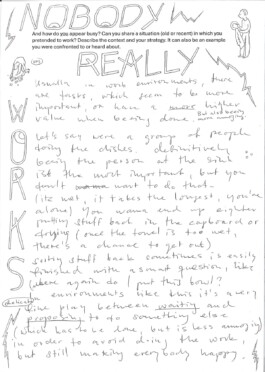 NOBODY
And how do you appear busy? Can you share a situation (old or recent) in which you
pretended to work? Describe the context and your strategy. It can also be an example
you were confronted to or heard about.
REALLY
WORKS
Usually in work environments there
are tasks, which seem to be more
important, or have a higher
value when being done. But well beeing
more annoying.
Let's say were a group of people
doing the dishes, definitively
being the person at the sink
is the most important, but you
don't want to do that.
(its wet, it takes the longest, you're
alone) You wanna end up eighter
putting stuff back in the cupboard or
drying (once the towel is too wet,
there's a chance to get out)
sorting stuff back sometimes is easily
finished with a smart question, like
where again do I put this bowl?
In environments like this it's a very
(delicate) fine play between waiting and
proposing to do something else
(which has to be done, but is less annoying)
in order to avoid doing the work,
but still making everybody happy.